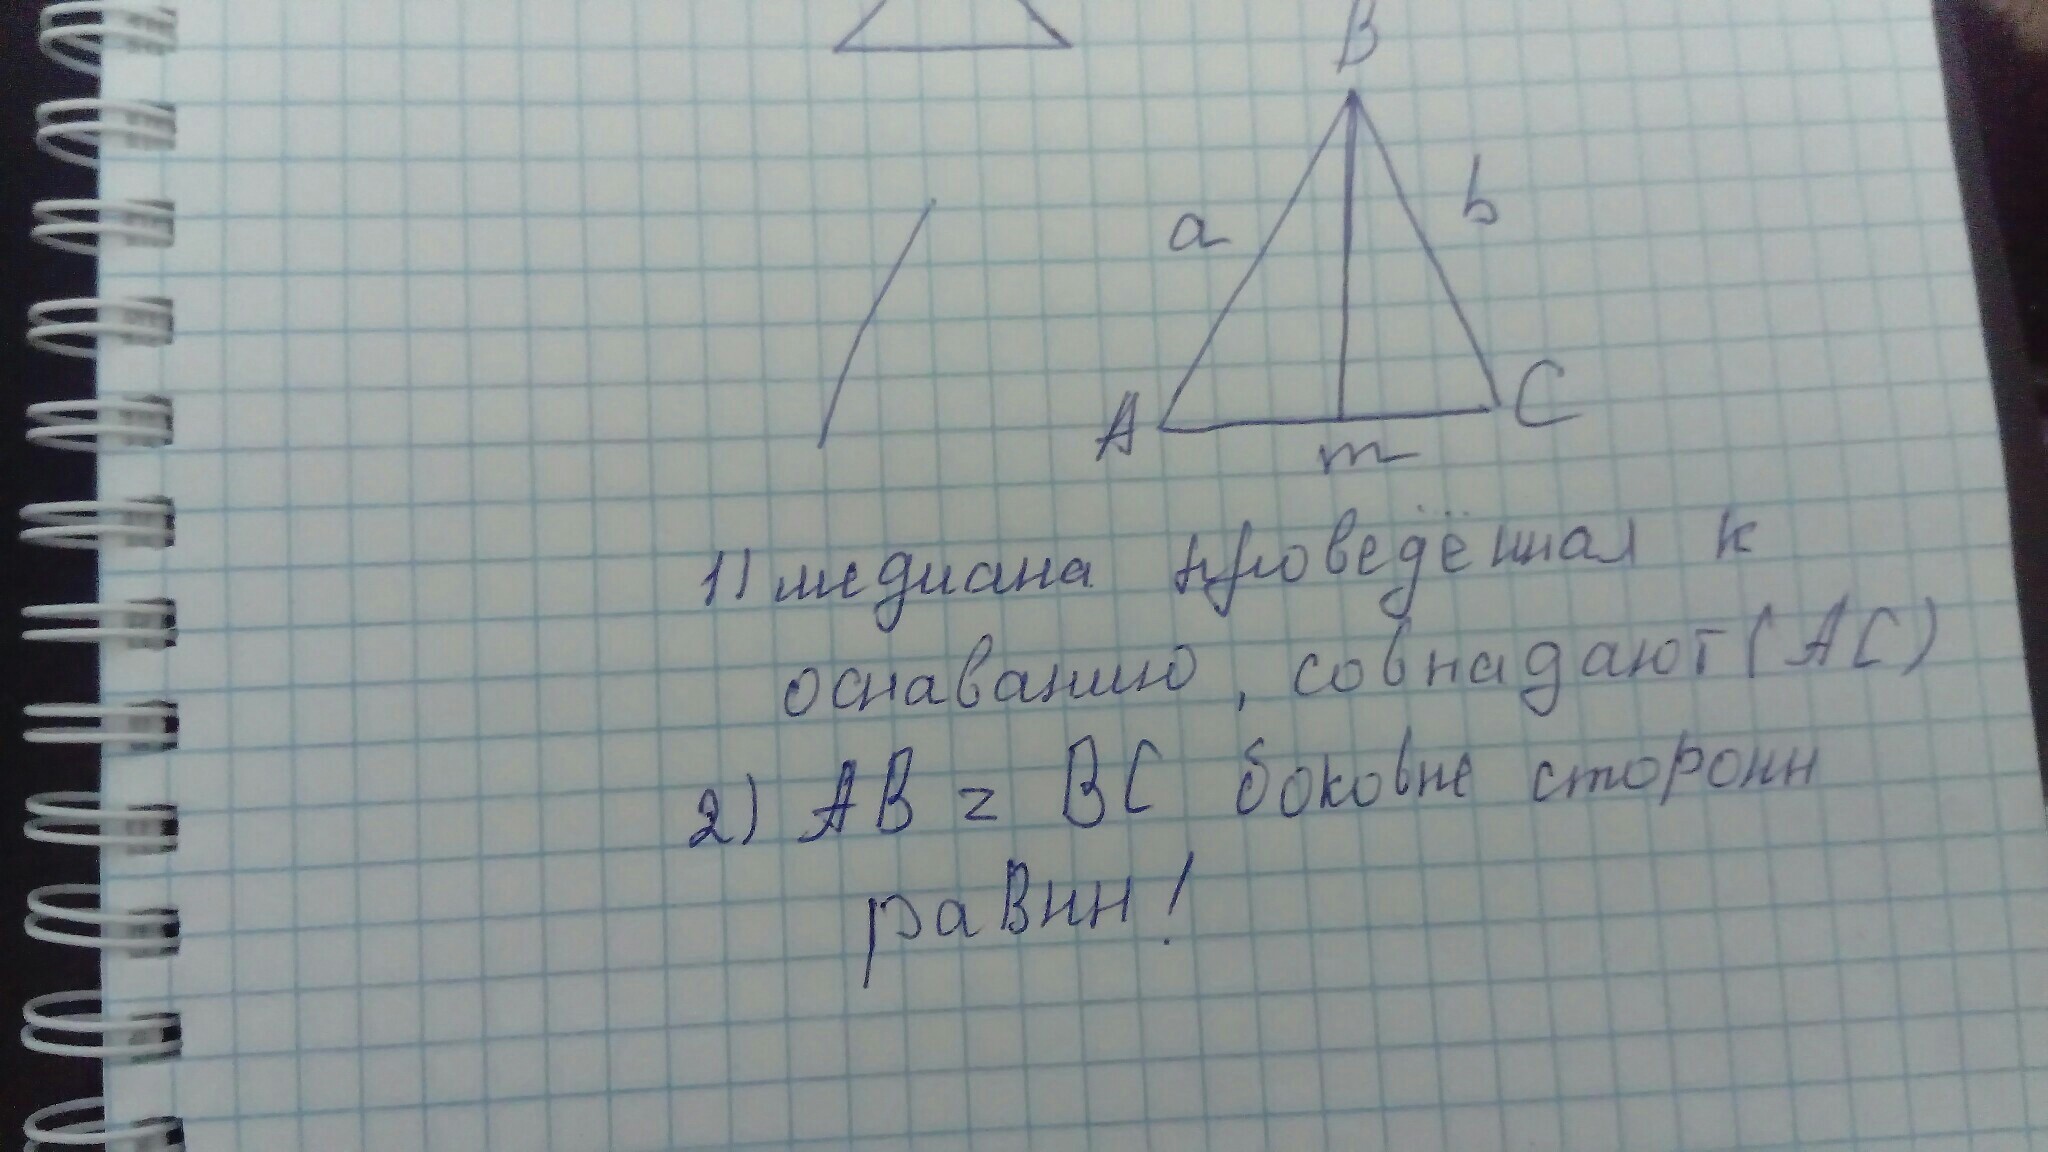 B
a b
A C
m
1) медиана проведённая к
оснаванию, совпадают (AC)
2) AB = BC боковые стороны
равны!